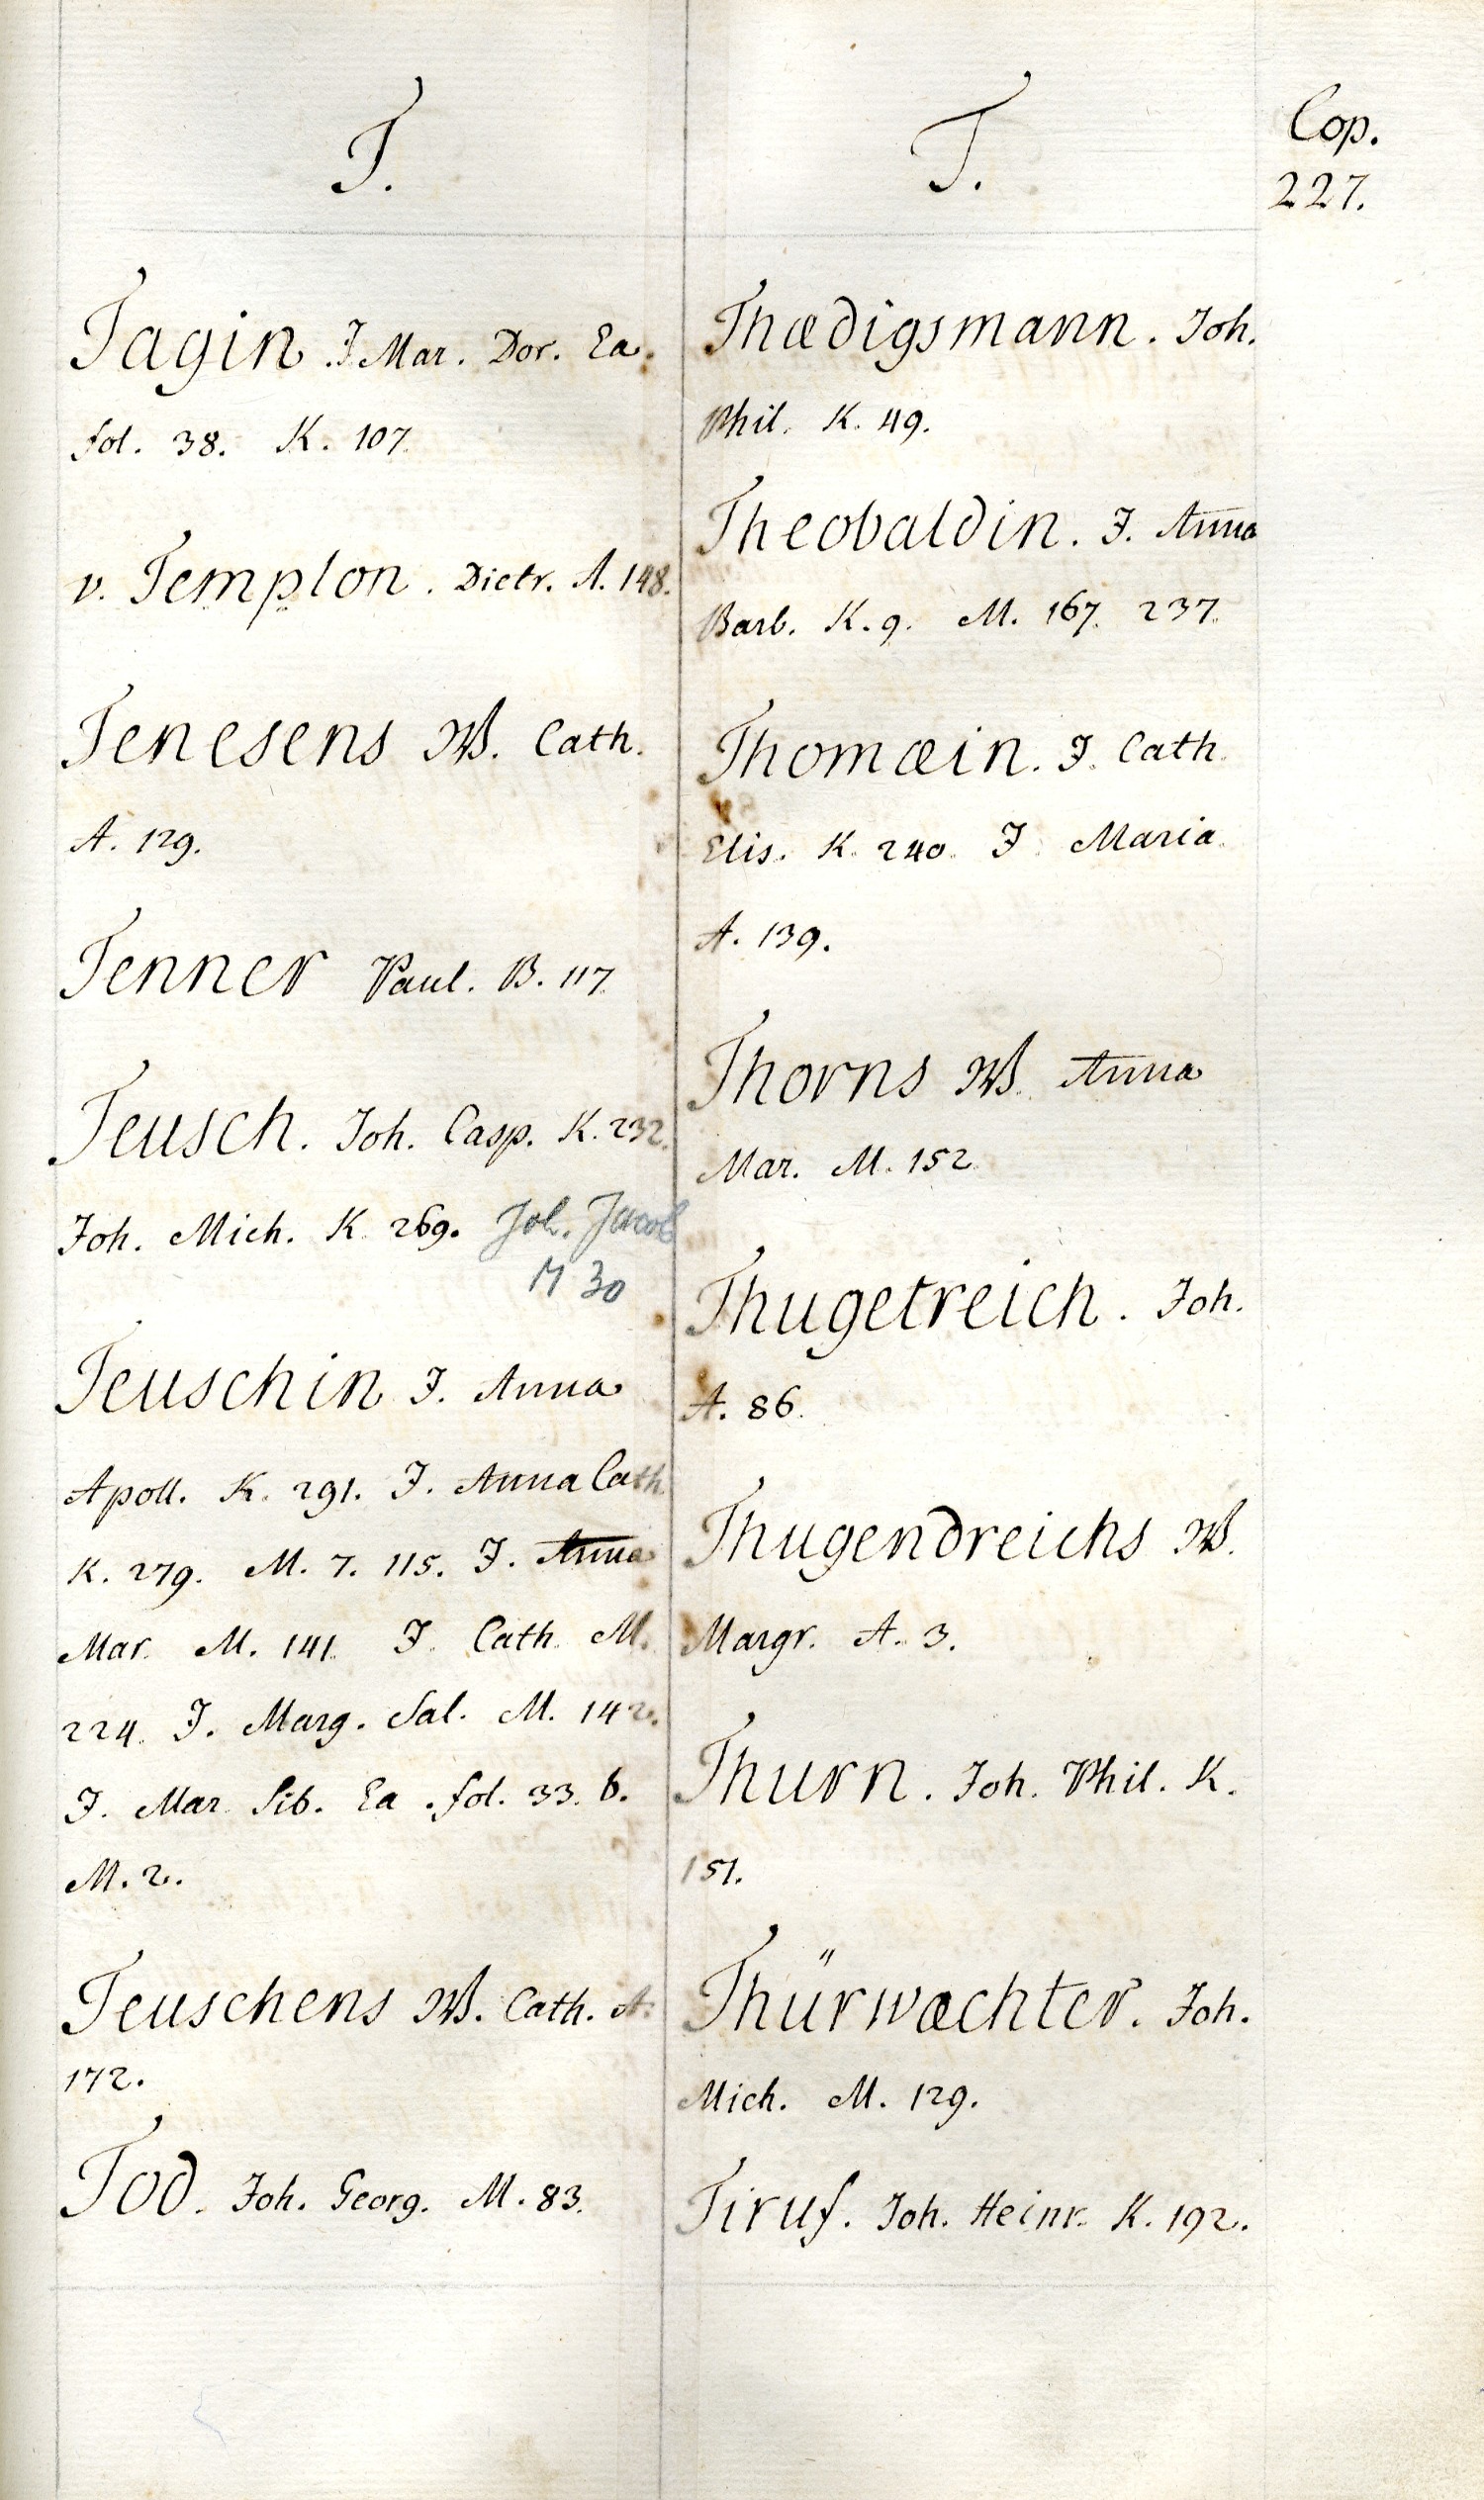 T.
Tagin J. Mar. Dor. Ea.
fol. 38. K. 107.
v. Templon. Dietr. A. 148.
Tenesens W. Cath.
A. 129.
Tenner Paul. B. 117.
Teusch. Joh. Casp. K. 232.
Joh. Mich. K. 269. Joh. Jacob
M 30
Teuschin J. Anna
Apoll. K. 291. J. Anna Cath.
K. 279. M. 7. 115. J. Anna
Mar. M. 141. J. Cath. M.
224. J. Marg. Sal. M. 142.
J. Mar. Sib. Ea. fol. 33. b.
M. 2.
Teuschens W. Cath. A.
172.
Tod. Joh. Georg. M. 83.
T.
Thædigsmann. Joh.
Phil. K. 49.
Theobaldin. J. Anna
Barb. K. 9. M. 167. 237.
Thomæin. J. Cath.
Elis. K. 240. J. Maria.
A. 139.
Thorns W. Anna
Mar. M. 152.
Thugetreich. Joh.
A. 86.
Thugendreichs W.
Margr. A. 3.
Thurn. Joh. Phil. K.
151.
Thürwæchter. Joh.
Mich. M. 129.
Tiruf. Joh. Heinr. K. 192.
Cop.
227.